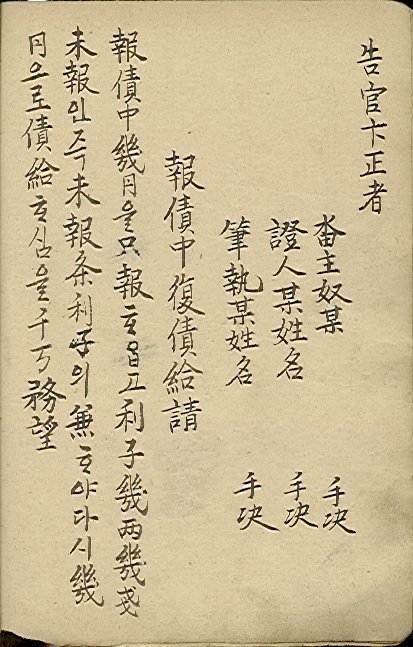 告官卞正者
畓主奴某 手决
證人某姓名 手决
筆執某姓名 手决
報債中復債給請
報債中幾円을只報ᄒᆞ옵고利子幾兩幾戔
未報인즉未報条利子의兼ᄒᆞ야다시幾
円으로債給ᄒᆞ심을千万務望